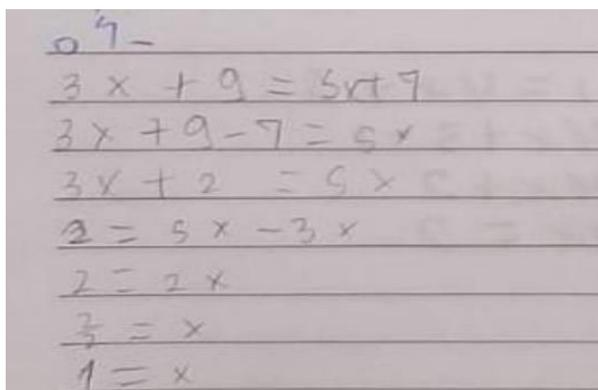 3x + 9 = 5x + 7
3x + 9 - 7 = 5x
3x + 2 = 5x
2 = 5x - 3x
2 = 2x
2/2 = x
1 = x